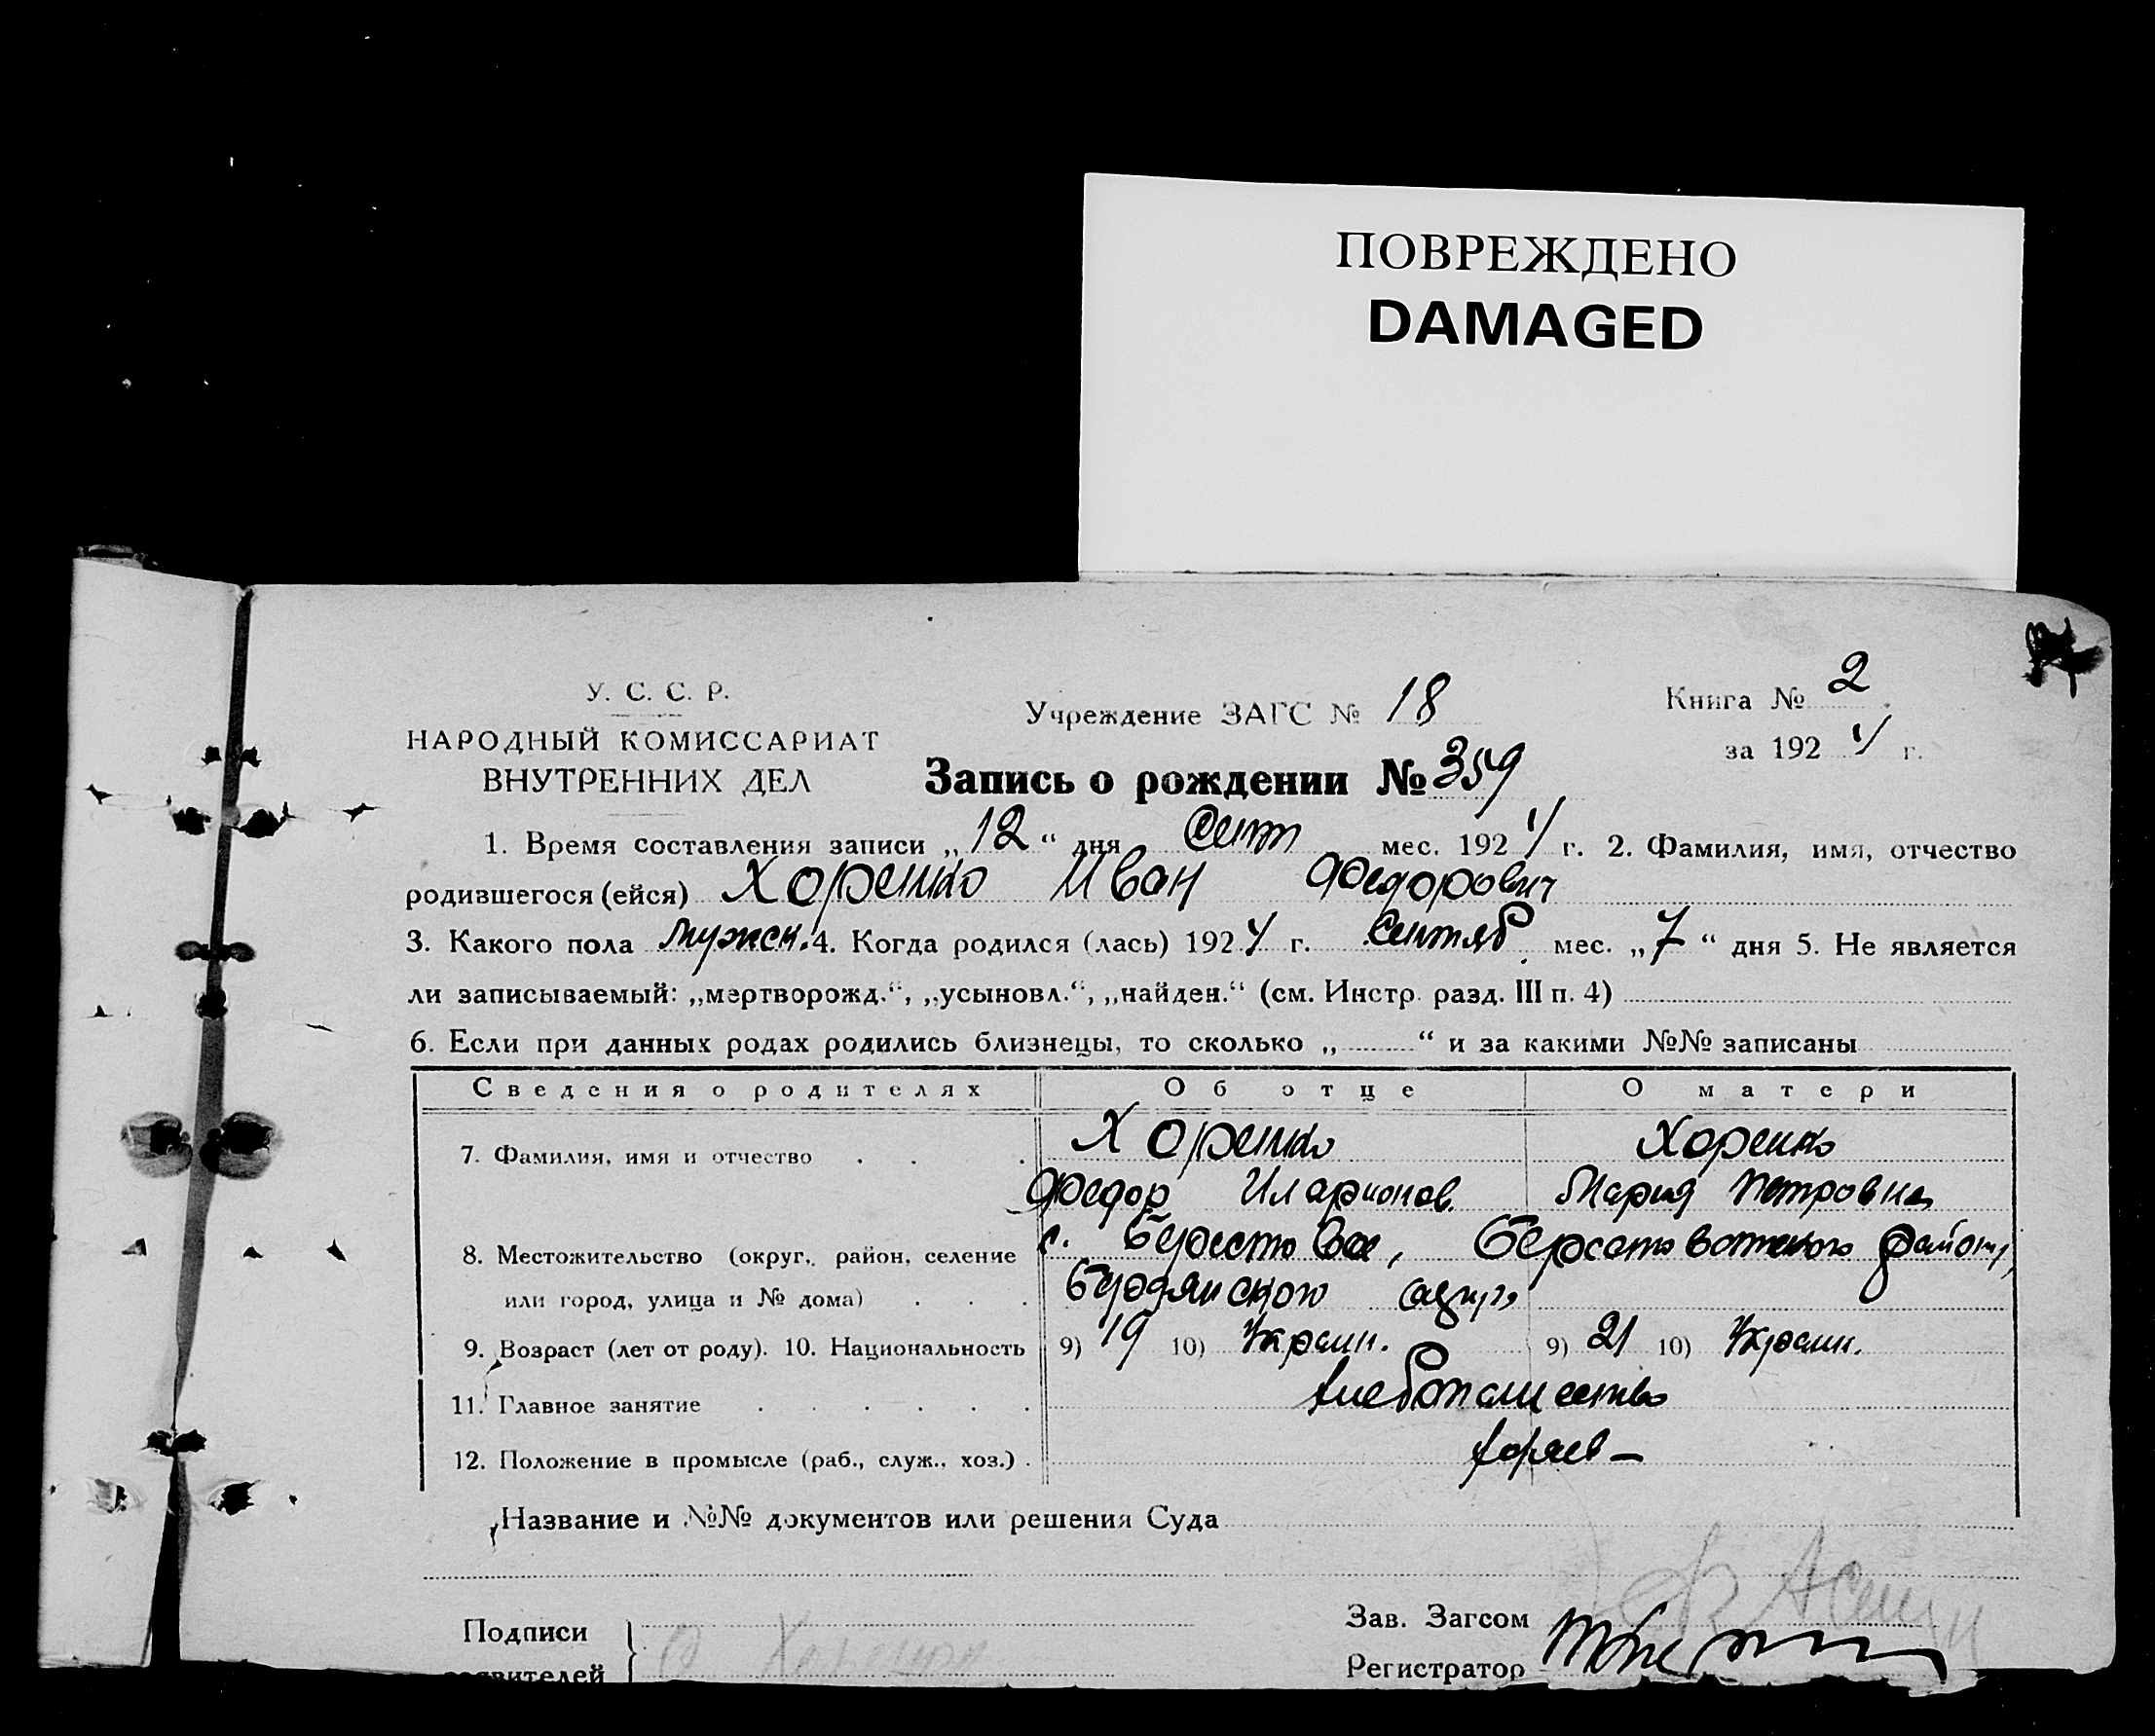 ПОВРЕЖДЕНО
DAMAGED
У. С. С. Р.
НАРОДНЫЙ КОМИССАРИАТ
ВНУТРЕННИХ ДЕЛ
Учреждение ЗАГС № 18
Книга № 2
за 1924 г.
Запись о рождении № 359
1. Время составления записи „12“ дня Сент мес. 1924 г. 2. Фамилия, имя, отчество
родившегося (ейся) Хоренко Иван Федорович
3. Какого пола мужск. 4. Когда родился (лась) 1924 г. Сентяб. мес. „7“ дня 5. Не является
ли записываемый: „мертворожд.“, „усыновл.“, „найден.“ (см. Инстр. разд. III п. 4)
6. Если при данных родах родились близнецы, то сколько „ “ и за какими №№ записаны
Сведения о родителях Об отце О матери
7. Фамилия, имя и отчество Хоренко Хоренко
Федор Иларионов. Мария Петровна
8. Местожительство (округ, район, селение с. Берестовое, района,
или город, улица и № дома) Бердянского
9. Возраст (лет от роду). 10. Национальность 9) 19 10) Украин. 9) 21 10) Украин.
11. Главное занятие хлебопашество
12. Положение в промысле (раб., служ., хоз.)
Название и №№ документов или решения Суда
Подписи
Зав. Загсом
заявителей Хоренко
Регистратор